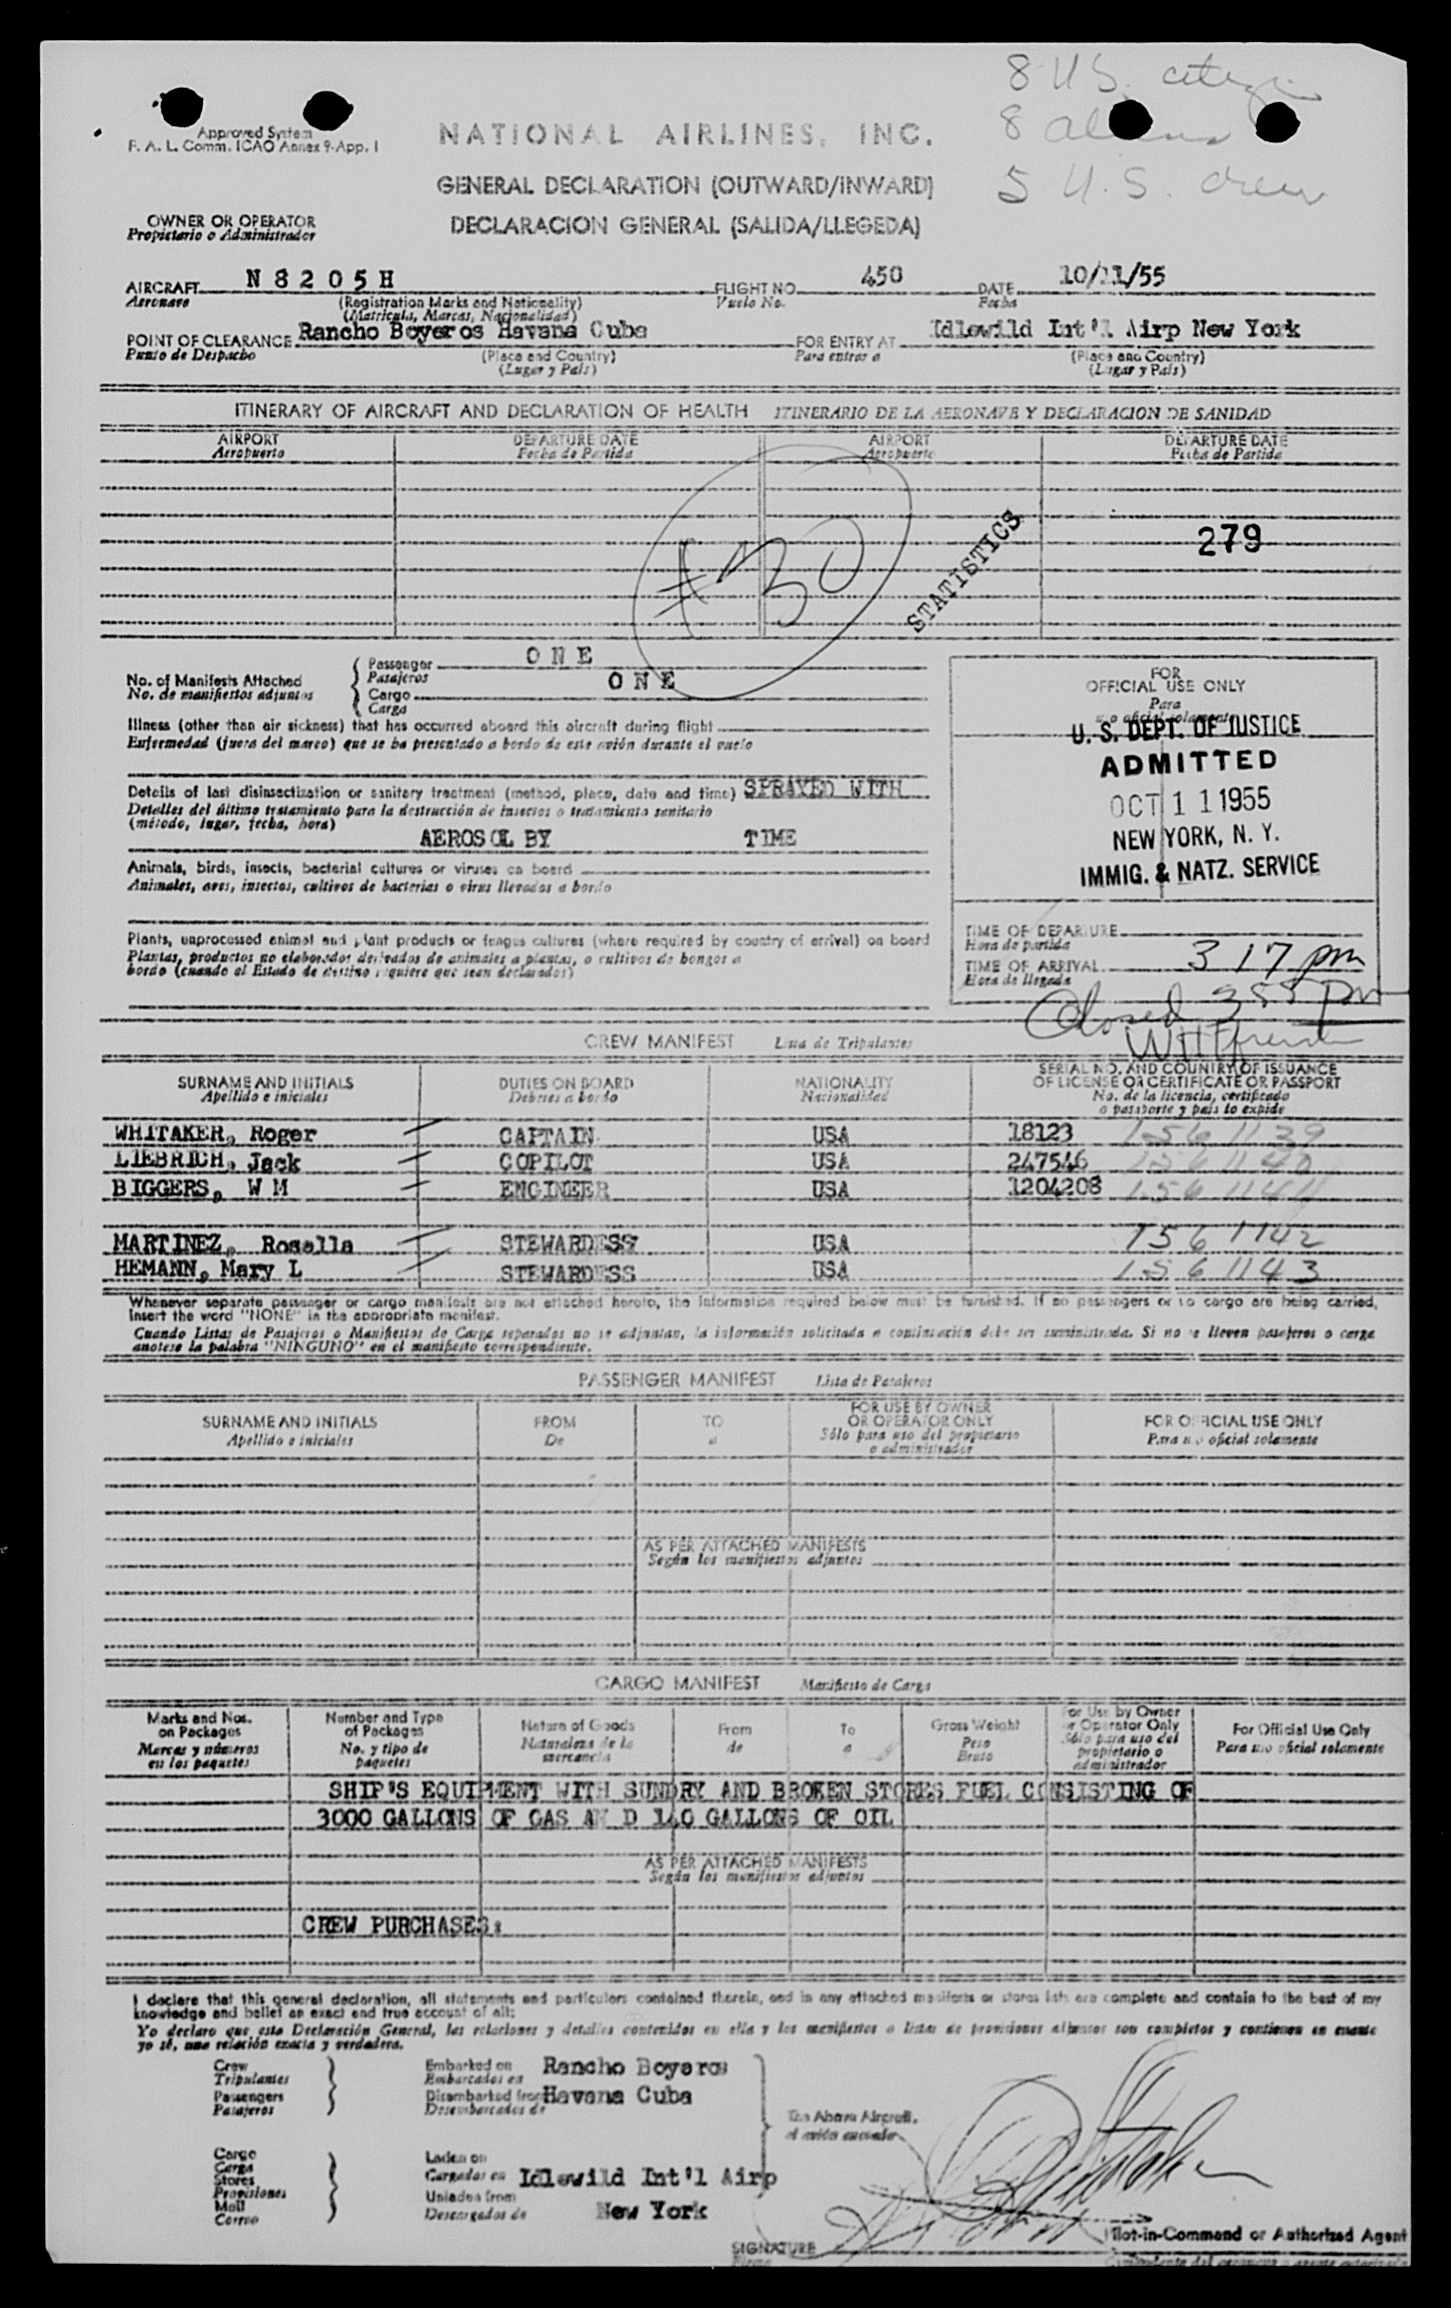 8 U.S. citizen
8 aliens
5 U.S. crew
Approved System
F. A. L. Comm. ICAO Annex 9-App. I
NATIONAL AIRLINES, INC.
GENERAL DECLARATION (OUTWARD/INWARD)
OWNER OR OPERATOR
Propietario o Administrador
DECLARACION GENERAL (SALIDA/LLEGEDA)
AIRCRAFT N 8 2 0 5 H FLIGHT NO. 450 DATE 10/11/55
Aeronave (Registration Marks and Nationality) Vuelo No. Fecha
(Matricula, Marcas, Nacionalidad)
POINT OF CLEARANCE Rancho Boyeros Havana Cuba FOR ENTRY AT Idlewild Int'l Airp New York
Punto de Despacho (Place and Country) Para entrar a (Place and Country)
(Lugar y País) (Lugar y País)
ITINERARY OF AIRCRAFT AND DECLARATION OF HEALTH ITINERARIO DE LA AERONAVE Y DECLARACION DE SANIDAD
AIRPORT DEPARTURE DATE AIRPORT DEPARTURE DATE
Aeropuerto Fecha de Partida Aeropuerto Fecha de Partida
279
#30
STATISTICS
No. of Manifests Attached Passenger O N E
No. de manifiestos adjuntos Pasajeros
Cargo O N E
Carga
Illness (other than air sickness) that has occurred aboard this aircraft during flight
Enfermedad (fuera del mareo) que se ha presentado a bordo de este avión durante el vuelo
Details of last disinsectization or sanitary treatment (method, place, date and time) SPRAYED WITH
Detalles del último tratamiento para la destrucción de insectos o tratamiento sanitario
(método, lugar, fecha, hora)
AEROSOL BY TIME
Animals, birds, insects, bacterial cultures or viruses on board
Animales, aves, insectos, cultivos de bacterias o virus llevados a bordo
Plants, unprocessed animal and plant products or fungus cultures (where required by country of arrival) on board
Plantas, productos no elaborados derivados de animales a plantas, o cultivos de hongos a
bordo (cuando el Estado de destino requiere que sean declarados)
FOR
OFFICIAL USE ONLY
Para
uso oficial solamente
U. S. DEPT. OF JUSTICE
ADMITTED
OCT 11 1955
NEW YORK, N. Y.
IMMIG. & NATZ. SERVICE
TIME OF DEPARTURE
Hora de partida
TIME OF ARRIVAL 3 17 pm
Hora de llegada
Closed 355 pm
CREW MANIFEST Lista de Tripulantes
SURNAME AND INITIALS DUTIES ON BOARD NATIONALITY SERIAL NO. AND COUNTRY OF ISSUANCE
OF LICENSE OR CERTIFICATE OR PASSPORT
Apellido e iniciales Deberes a bordo Nacionalidad No. de la licencia, certificado
o pasaporte y país lo expide
WHITAKER, Roger CAPTAIN USA 18123 1561139
LIEBRICH, Jack COPILOT USA 247546 1561140
BIGGERS, W M ENGINEER USA 1204208 1561141
MARTINEZ, Rosella STEWARDESS USA 1561142
HEMANN, Mary L STEWARDESS USA 1561143
Whenever separate passenger or cargo manifests are not attached hereto, the information required below must be furnished. If no passengers or no cargo are being carried,
insert the word "NONE" in the appropriate manifest.
Cuando Listas de Pasajeros o Manifiestos de Carga separados no se adjuntan, la información solicitada a continuación debe ser suministrada. Si no se lleven pasajeros o carga
anotese la palabra "NINGUNO" en el manifiesto correspondiente.
PASSENGER MANIFEST Lista de Pasajeros
SURNAME AND INITIALS FROM TO FOR USE BY OWNER
OR OPERATOR ONLY FOR OFFICIAL USE ONLY
Apellido e iniciales De a Sólo para uso del propietario
o administrador Para uso oficial solamente
AS PER ATTACHED MANIFESTS
Según los manifiestos adjuntos
CARGO MANIFEST Manifiesto de Carga
Marks and Nos.
on Packages
Marcas y números
en los paquetes
Number and Type
of Packages
No. y tipo de
paquetes
Nature of Goods
Naturaleza de la
mercancía
From
de
To
a
Gross Weight
Peso
Bruto
For Use by Owner
or Operator Only
Sólo para uso del
propietario o
administrador
For Official Use Only
Para uso oficial solamente
SHIP'S EQUIPMENT WITH SUNDRY AND BROKEN STORES FUEL CONSISTING OF
3000 GALLONS OF GAS AN D 140 GALLONS OF OIL
AS PER ATTACHED MANIFESTS
Según los manifiestos adjuntos
CREW PURCHASES:
I declare that this general declaration, all statements and particulars contained therein, and in any attached manifests or stores lists are complete and contain to the best of my
knowledge and belief an exact and true account of all:
Yo declaro que esta Declaración General, las relaciones y detalles contenidos en ella y los manifiestos o listas de provisiones adjuntos son completos y contienen en cuanto
yo sé, una relación exacta y verdadera.
Crew
Tripulantes
Passengers
Pasajeros
Embarked on Rancho Boyeros
Embarcados en
Disembarked from Havana Cuba
Desembarcados de
The Above Aircraft.
el avión anotado
Cargo
Carga
Stores
Provisiones
Mail
Correo
Laden on
Cargados en Idlewild Int'l Airp
Unladen from
Descargados de New York
SIGNATURE
Firma
Pilot-in-Command or Authorized Agent